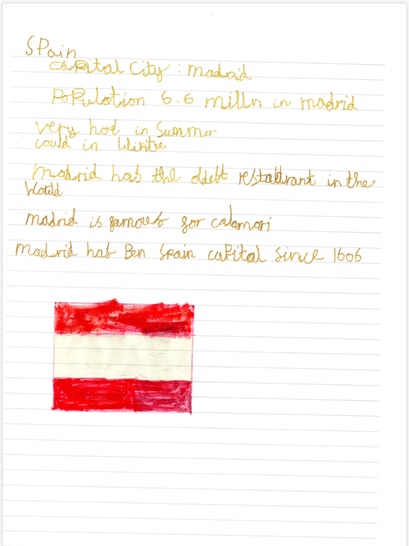 SPain
capital City : madrid
PoPulotion 6.6 milln in madrid
very hot in Summer
could in Wintre
madrid has the oldest restallrant in the
World
madrid is famous for calamari
madrid has Ben Spain caPital Since 1606